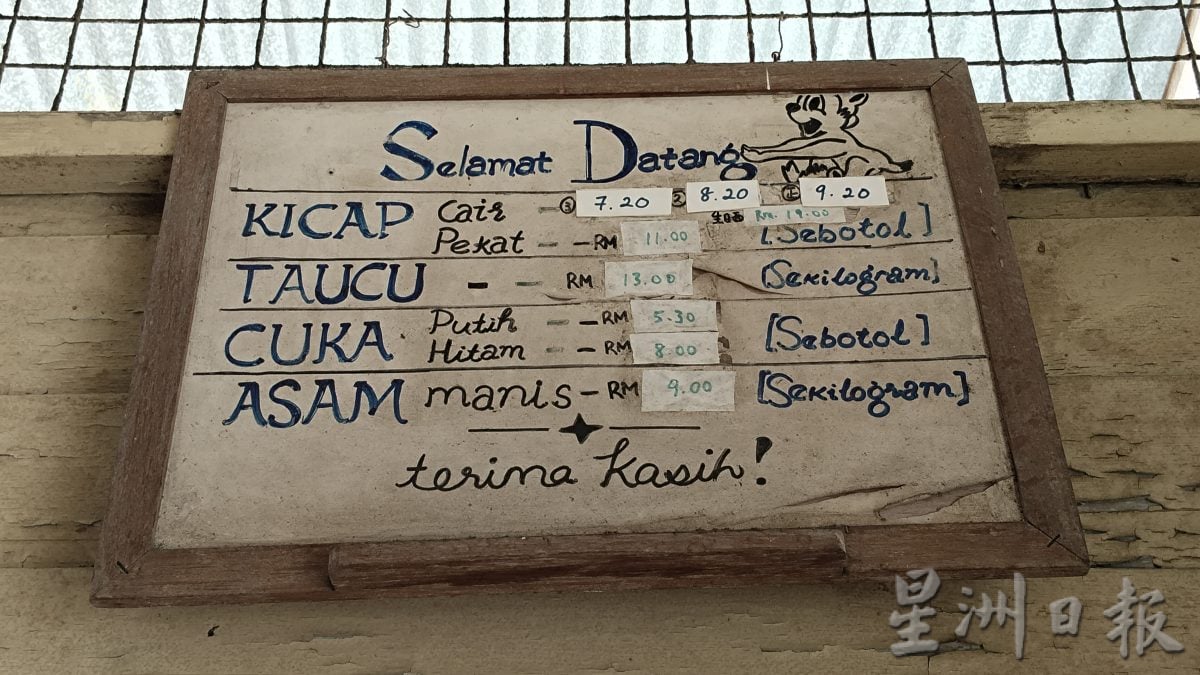 Selamat Datang
KICAP Cair – ③ 7.20 ② 8.20 正 9.20
Rm. 19.00
Pekat – – RM 11.00 [Sebotol]
TAUCU – – RM 13.00 [Sekilogram]
CUKA Putih – – RM 5.30 [Sebotol]
Hitam – – RM 8.00
ASAM manis – RM 9.00 [Sekilogram]
terima kasih!
星洲日報